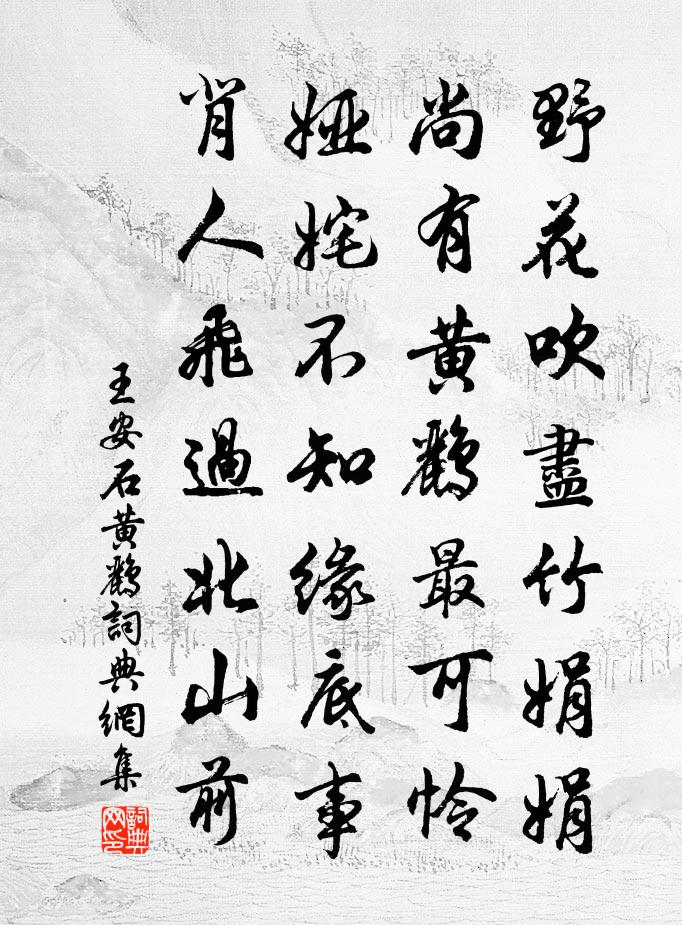 野花吹盡竹娟娟
尚有黄鸝最可怜
婭姹不知緣底事
背人飛過北山前
王安石黄鸝詞典網集
詞典网印